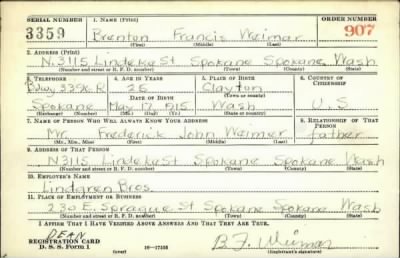 SERIAL NUMBER 1. NAME (Print) ORDER NUMBER
3359 Brenton Francis Weimar 907
(First) (Middle) (Last)
2. ADDRESS (Print)
N.3115 Lindeke St Spokane Spokane Wash
(Number and street or R. F. D. number) (Town) (County) (State)
3. TELEPHONE 4. AGE IN YEARS 5. PLACE OF BIRTH 6. COUNTRY OF CITIZENSHIP
Bdwy 3396-R 25 Clayton
DATE OF BIRTH (Town or county)
Spokane May 17, 1915 Wash U.S
(Exchange) (Number) (Mo.) (Day) (Yr.) (State or country)
7. NAME OF PERSON WHO WILL ALWAYS KNOW YOUR ADDRESS 8. RELATIONSHIP OF THAT PERSON
Mr. Frederick John Weimer father
(Mr., Mrs., Miss) (First) (Middle) (Last)
9. ADDRESS OF THAT PERSON
N3115 Lindeke St Spokane Spokane Wash
(Number and street or R. F. D. number) (Town) (County) (State)
10. EMPLOYER'S NAME
Lindgren Bros.
11. PLACE OF EMPLOYMENT OR BUSINESS
230 E. Sprague St Spokane Spokane Wash
(Number and street or R. F. D. number) (Town) (County) (State)
I AFFIRM THAT I HAVE VERIFIED ABOVE ANSWERS AND THAT THEY ARE TRUE.
DEAN
REGISTRATION CARD
D. S. S. Form 1 (over) 16-17105 B. F. Weimar
(Registrant's signature)